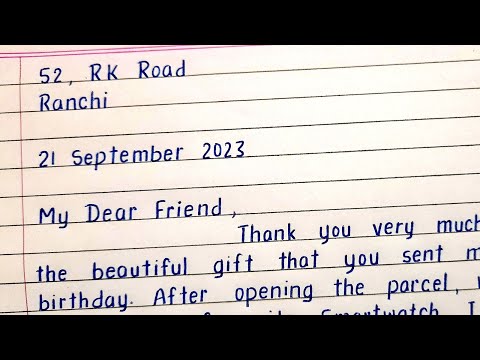 52, RK Road
Ranchi
21 September 2023
My Dear Friend,
Thank you very much
the beautiful gift that you sent
birthday. After opening the parcel,
Smartwatch. I